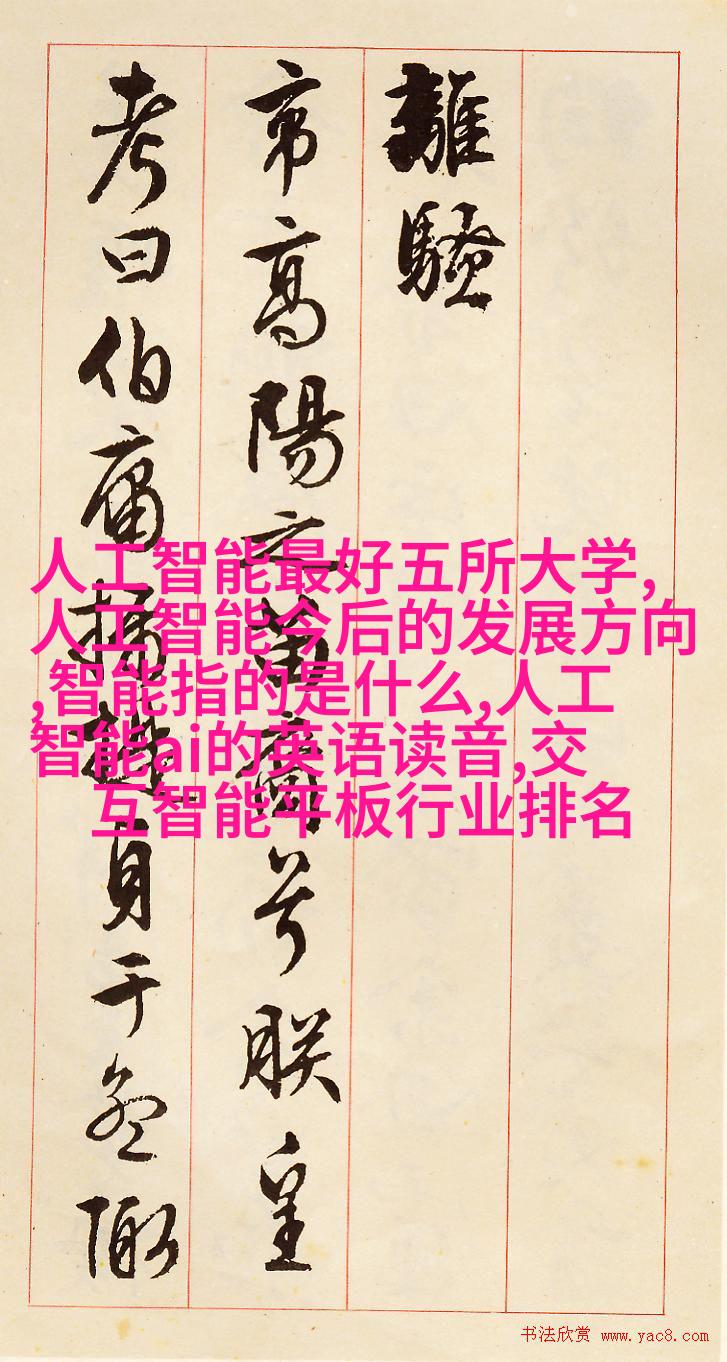 離騷
帝高陽之苗裔兮朕皇
考曰伯庸攝提貞于孟陬
人工智能最好五所大学,
人工智能今后的发展方向
,智能指的是什么,人工
智能ai的英语读音,交
互智能平板行业排名
书法欣赏 www.yac8.com